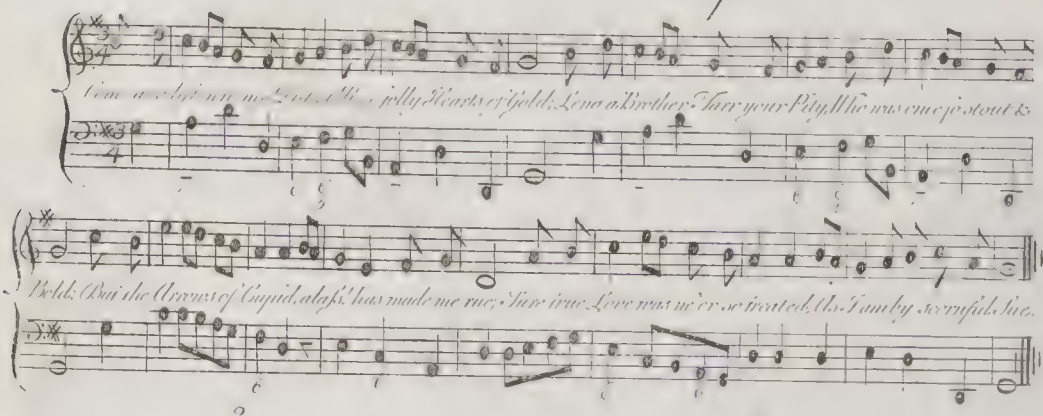 jolly Hearts of Gold; Lend a Brother Tarr your Pity, Who was once so stout &
Bold: But the Arrows of Cupid, alass! has made me rue; Sure true Love was ne'er so treated, As I am by scornful Sue.